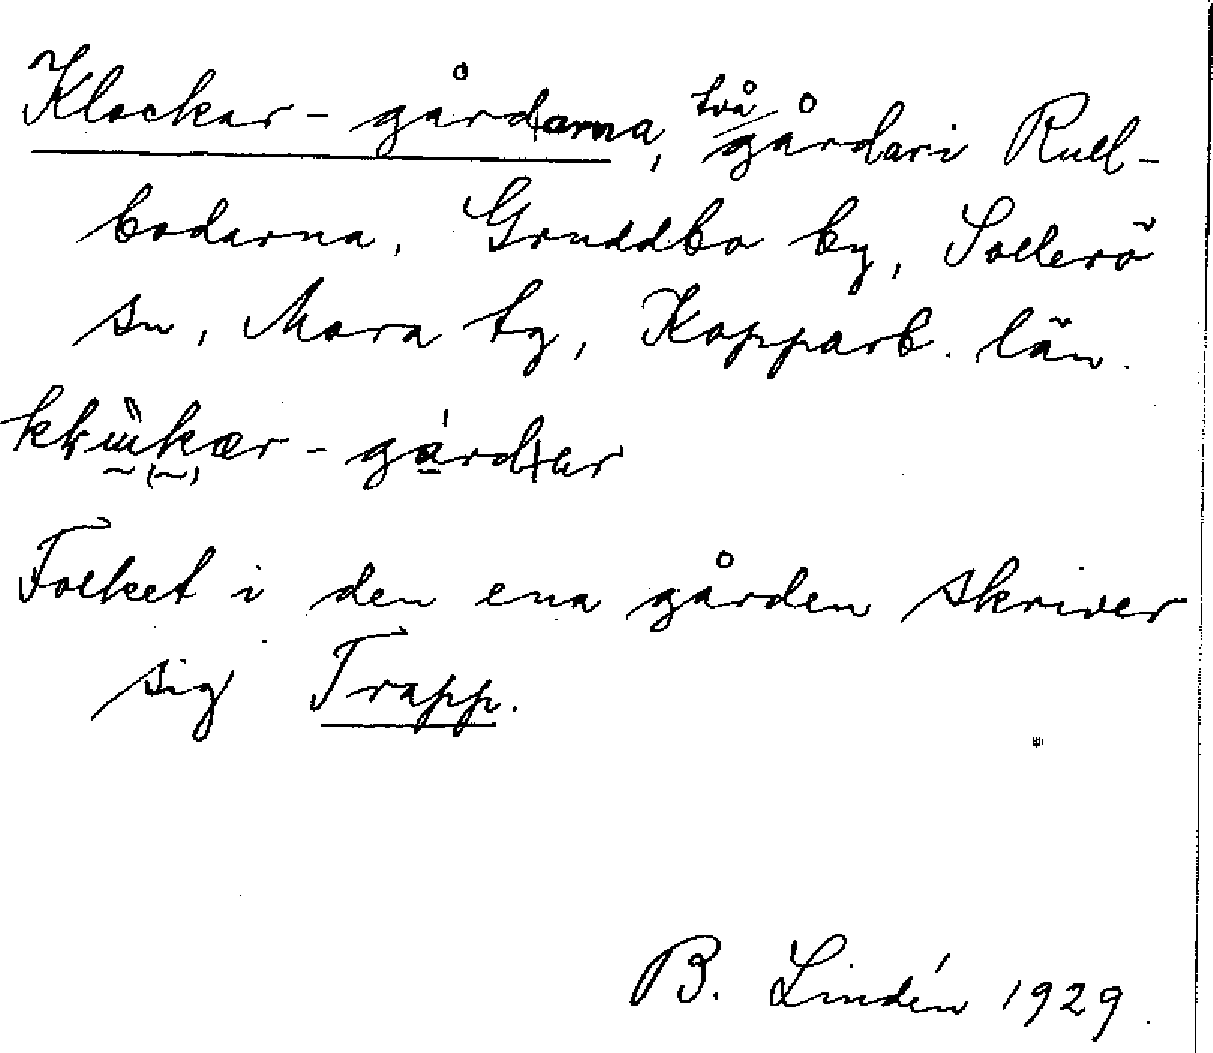 Klockar-gårdarna, två gårdar i Rull-
bodarna, Gruddbo by, Sollerö
sn, Mora tg, Kopparb. län.
Folket i den ena gården skriver
sig Trapp.
B. Lindén 1929.